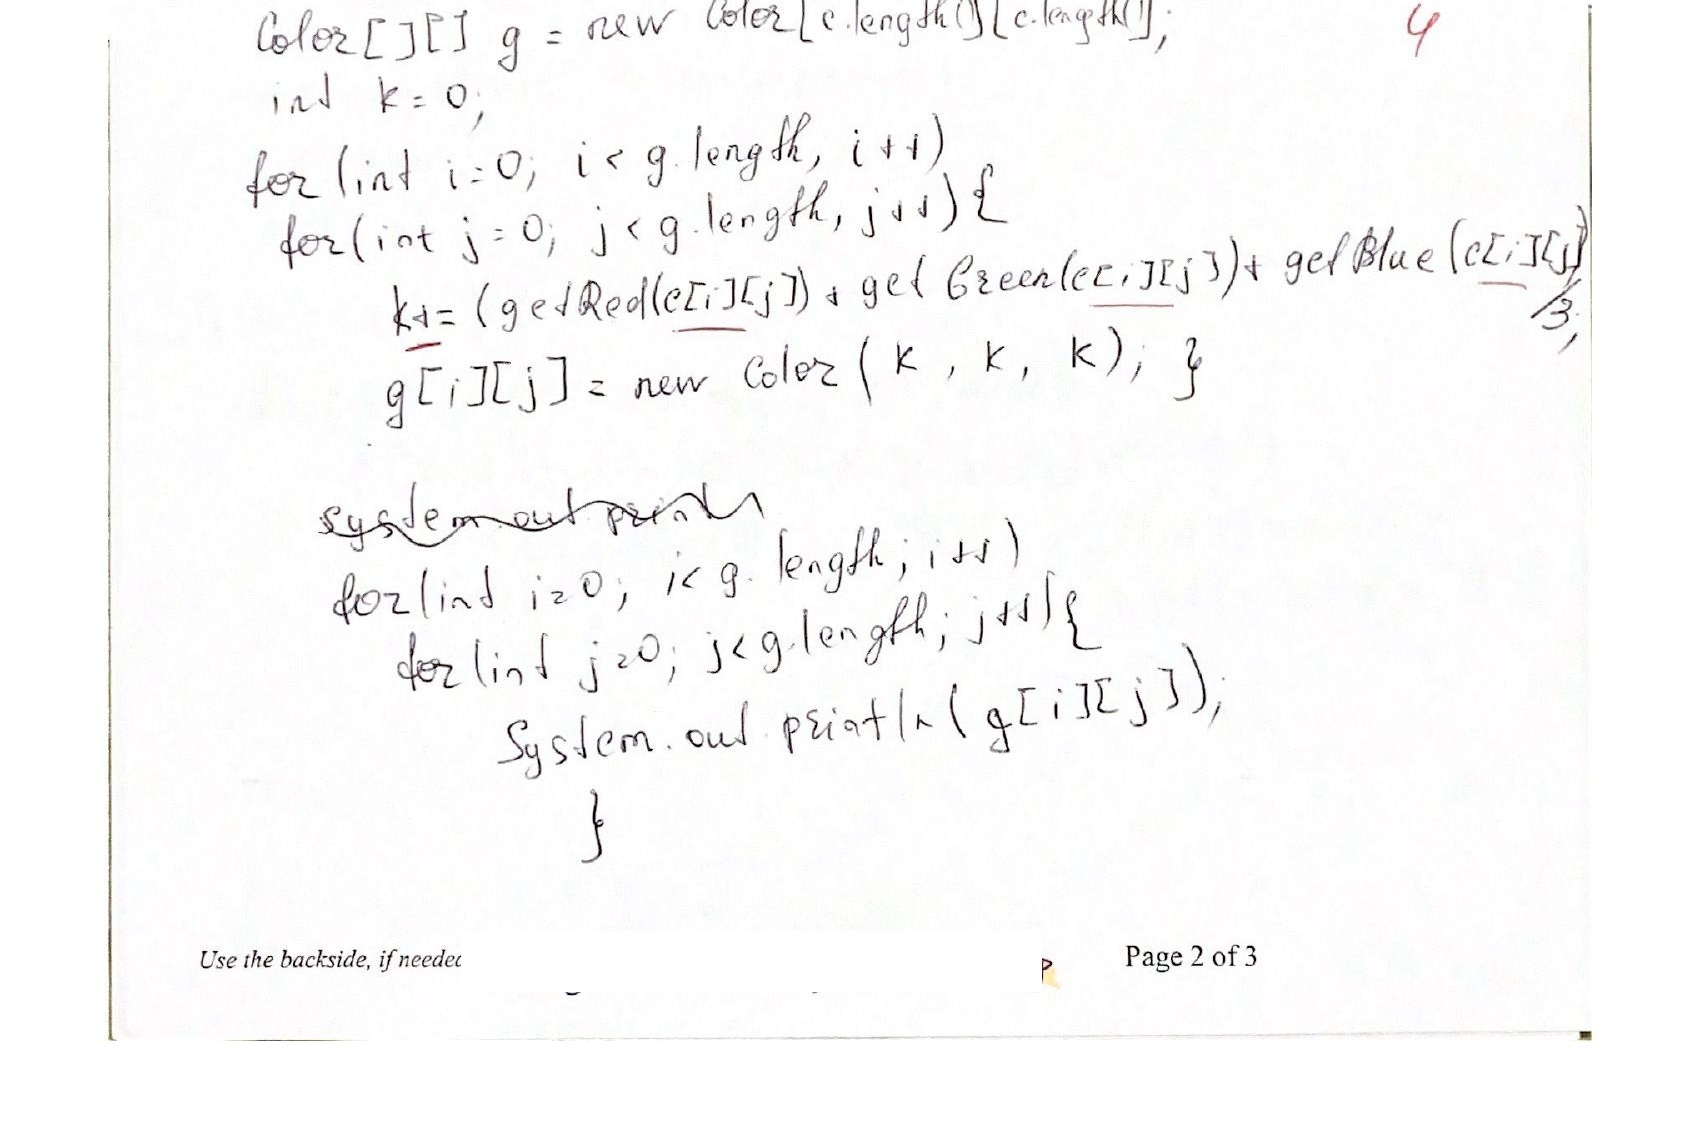 Color[][] g = new Color[c.length()][c.length()];
4
int k=0;
for (int i=0; i< g.length, i++)
for(int j=0; j<g.length, j++){
k+= (getRed(c[i][j]) + getGreen(c[i][j])+ getBlue(c[i][j])
/3;
g[i][j]= new Color(k, k, k); }
system out println
for(int i=0; i<g.length; i++)
for(int j=0; j<g.length; j++){
System.out.println(g[i][j]);
}
Use the backside, if needed
Page 2 of 3